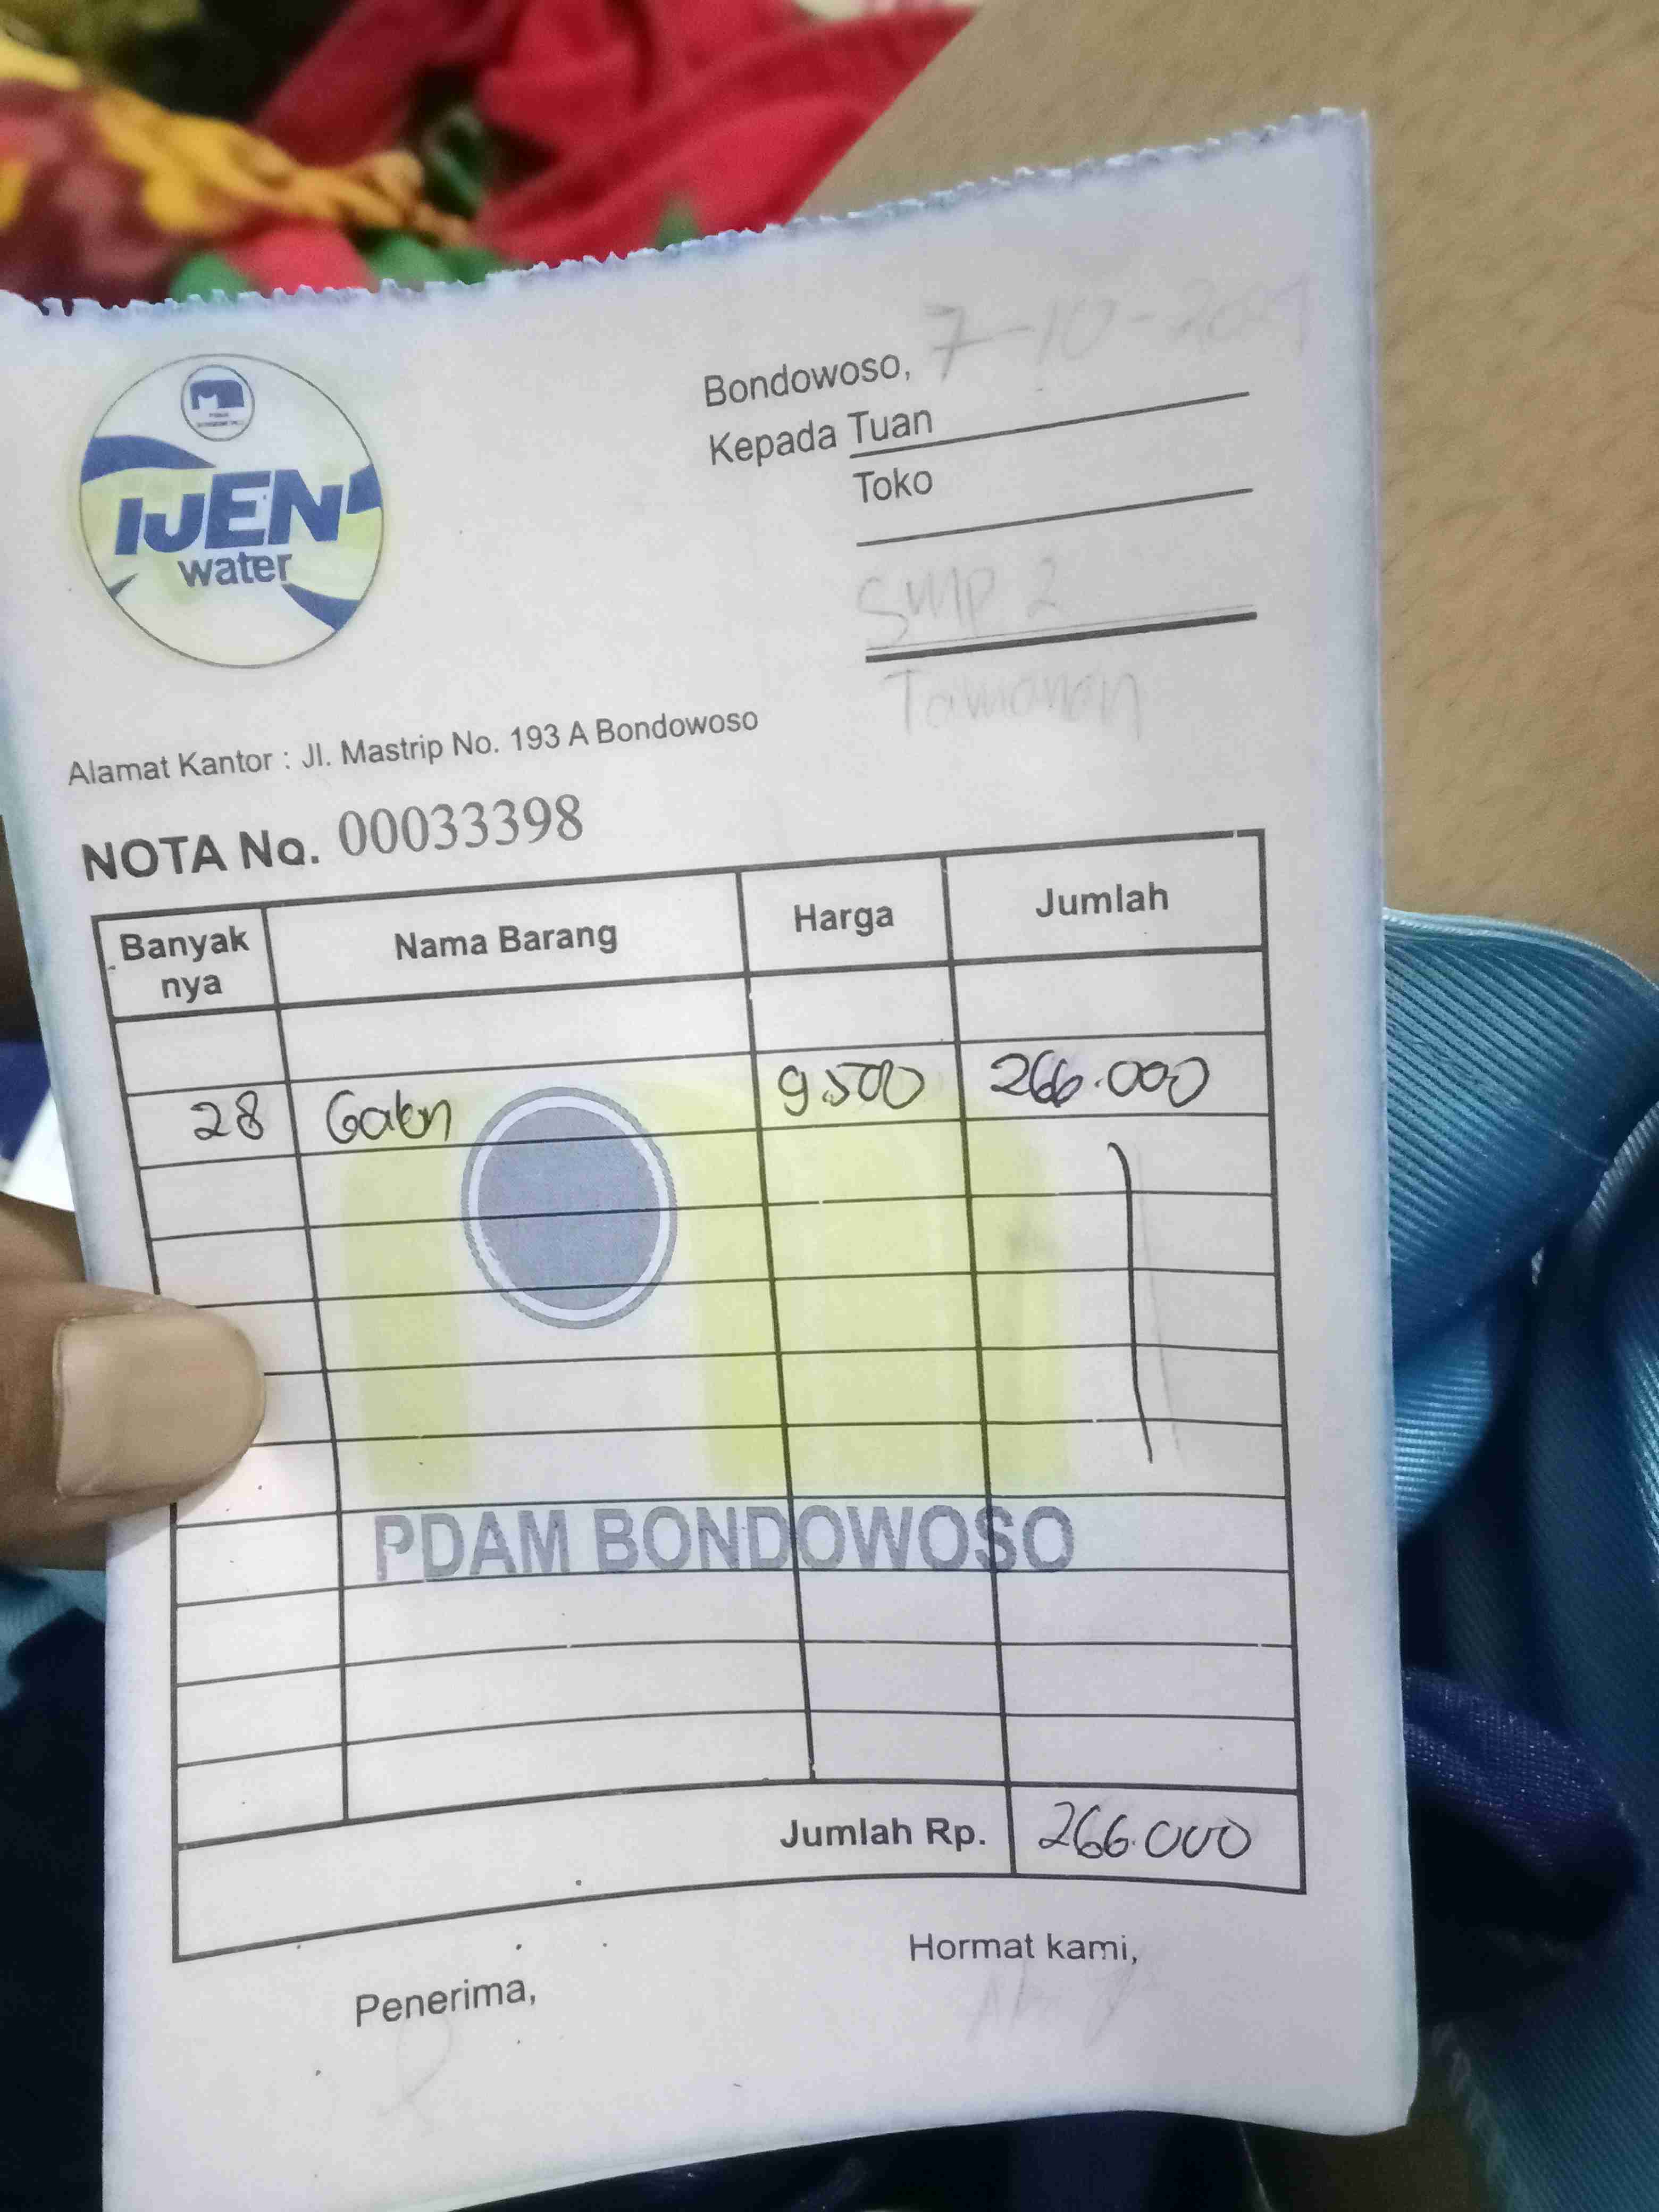 IJEN
water
Bondowoso, 7-10-2021
Kepada Tuan
Toko
SMP 2
Tamanan
Alamat Kantor : Jl. Mastrip No. 193 A Bondowoso
NOTA No. 00033398
Banyak nya Nama Barang Harga Jumlah
28 Galon 9.500 266.000
PDAM BONDOWOSO
Jumlah Rp. 266.000
Penerima, Hormat kami,